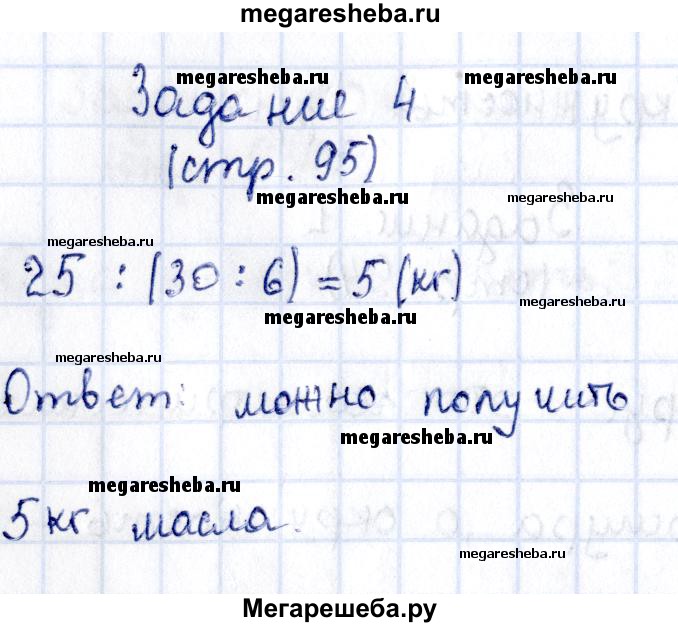 megaresheba.ru
megaresheba.ru megaresheba.ru
Задание 4
(стр. 95)
megaresheba.ru megaresheba.ru
megaresheba.ru
25 : (30 : 6) = 5 (кг)
megaresheba.ru megaresheba.ru
megaresheba.ru
Ответ: можно получить
megaresheba.ru
megaresheba.ru
5 кг масла.
megaresheba.ru
Мегарешеба.ру